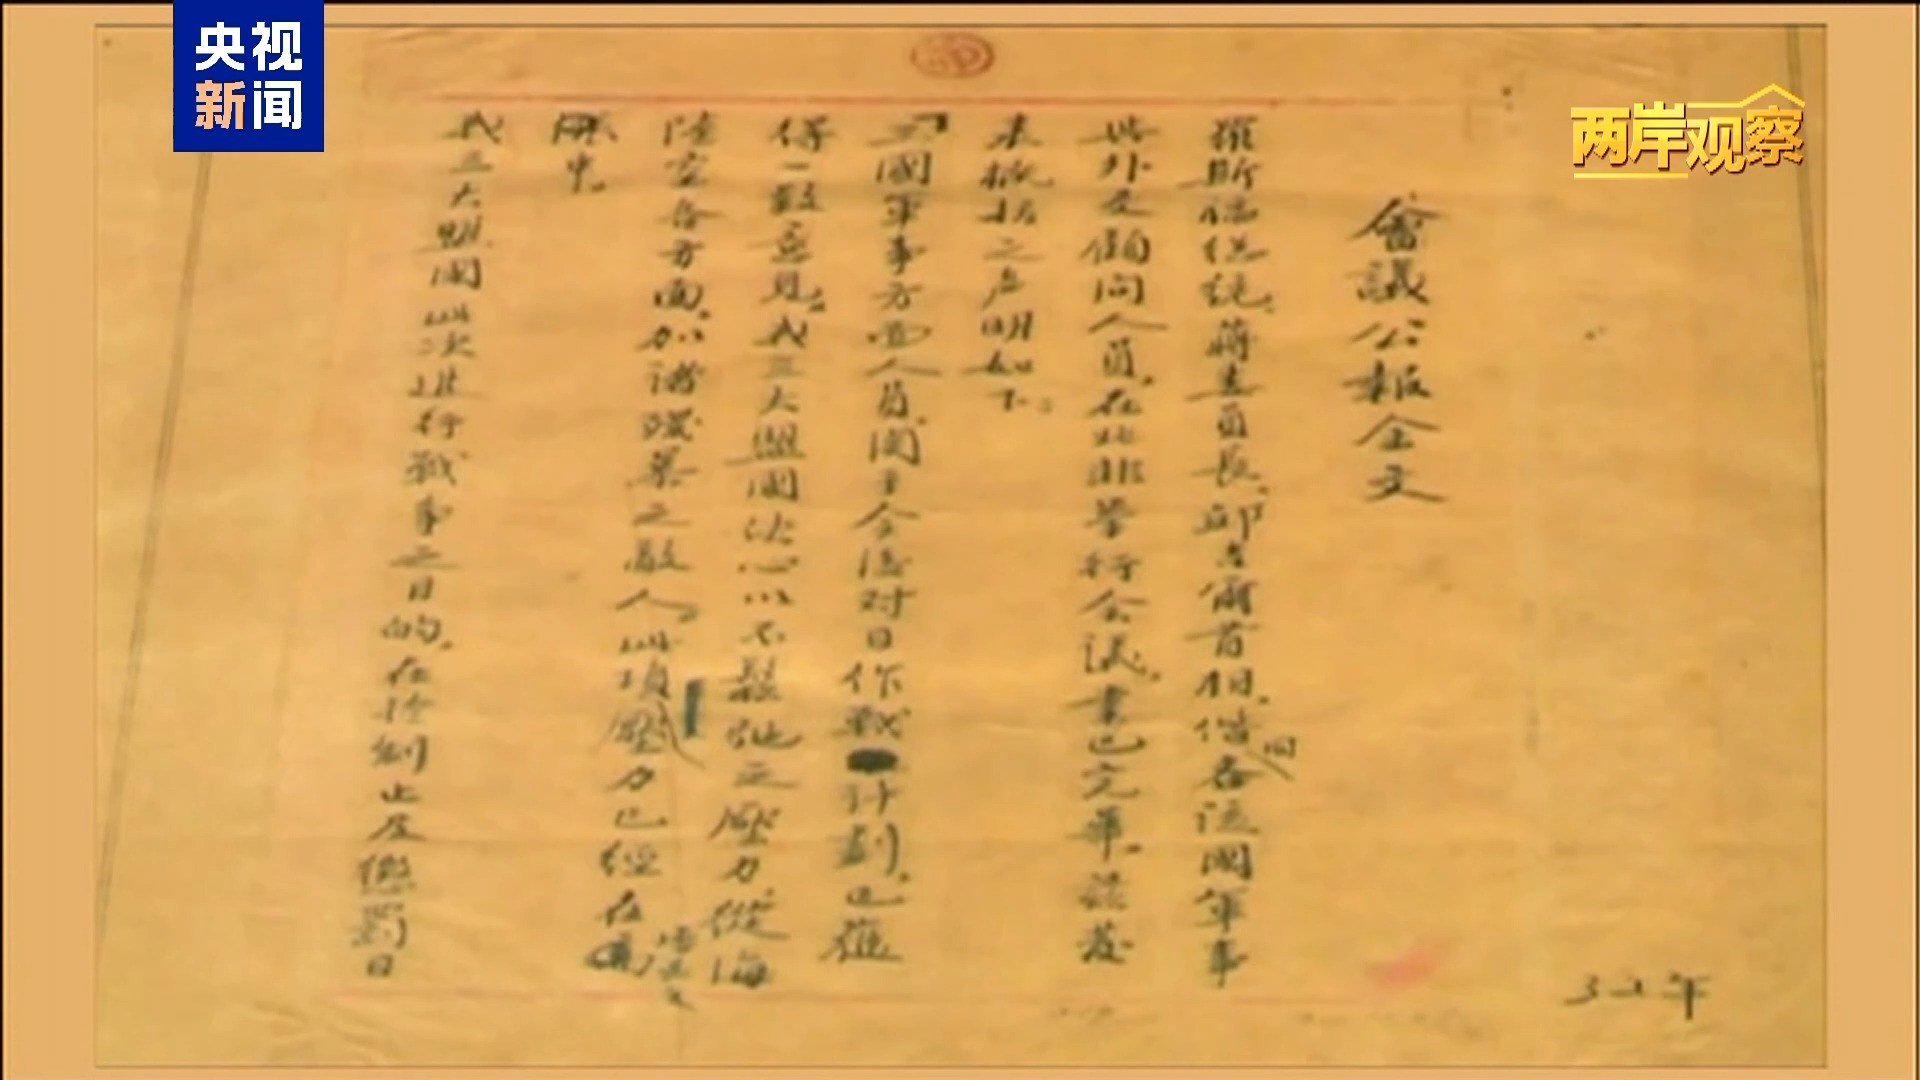 央视
新闻
两岸观察
會議公報全文
羅斯福總統、蔣委員長、邱吉爾首相、偕同各該國軍事
外交顧問人員，在北非舉行会議，業已完畢，茲發
表概括之声明如下。
「三國軍事方面人員，関于今後对日作戰計劃，已獲
得一致意見，我三大盟國决心以不鬆弛之壓力，從海
陸空各方面，加諸殘暴之敵人，此項壓力已經在
中。
我三大盟國此次進行戰爭之目的，在於制止及懲罰日
32年